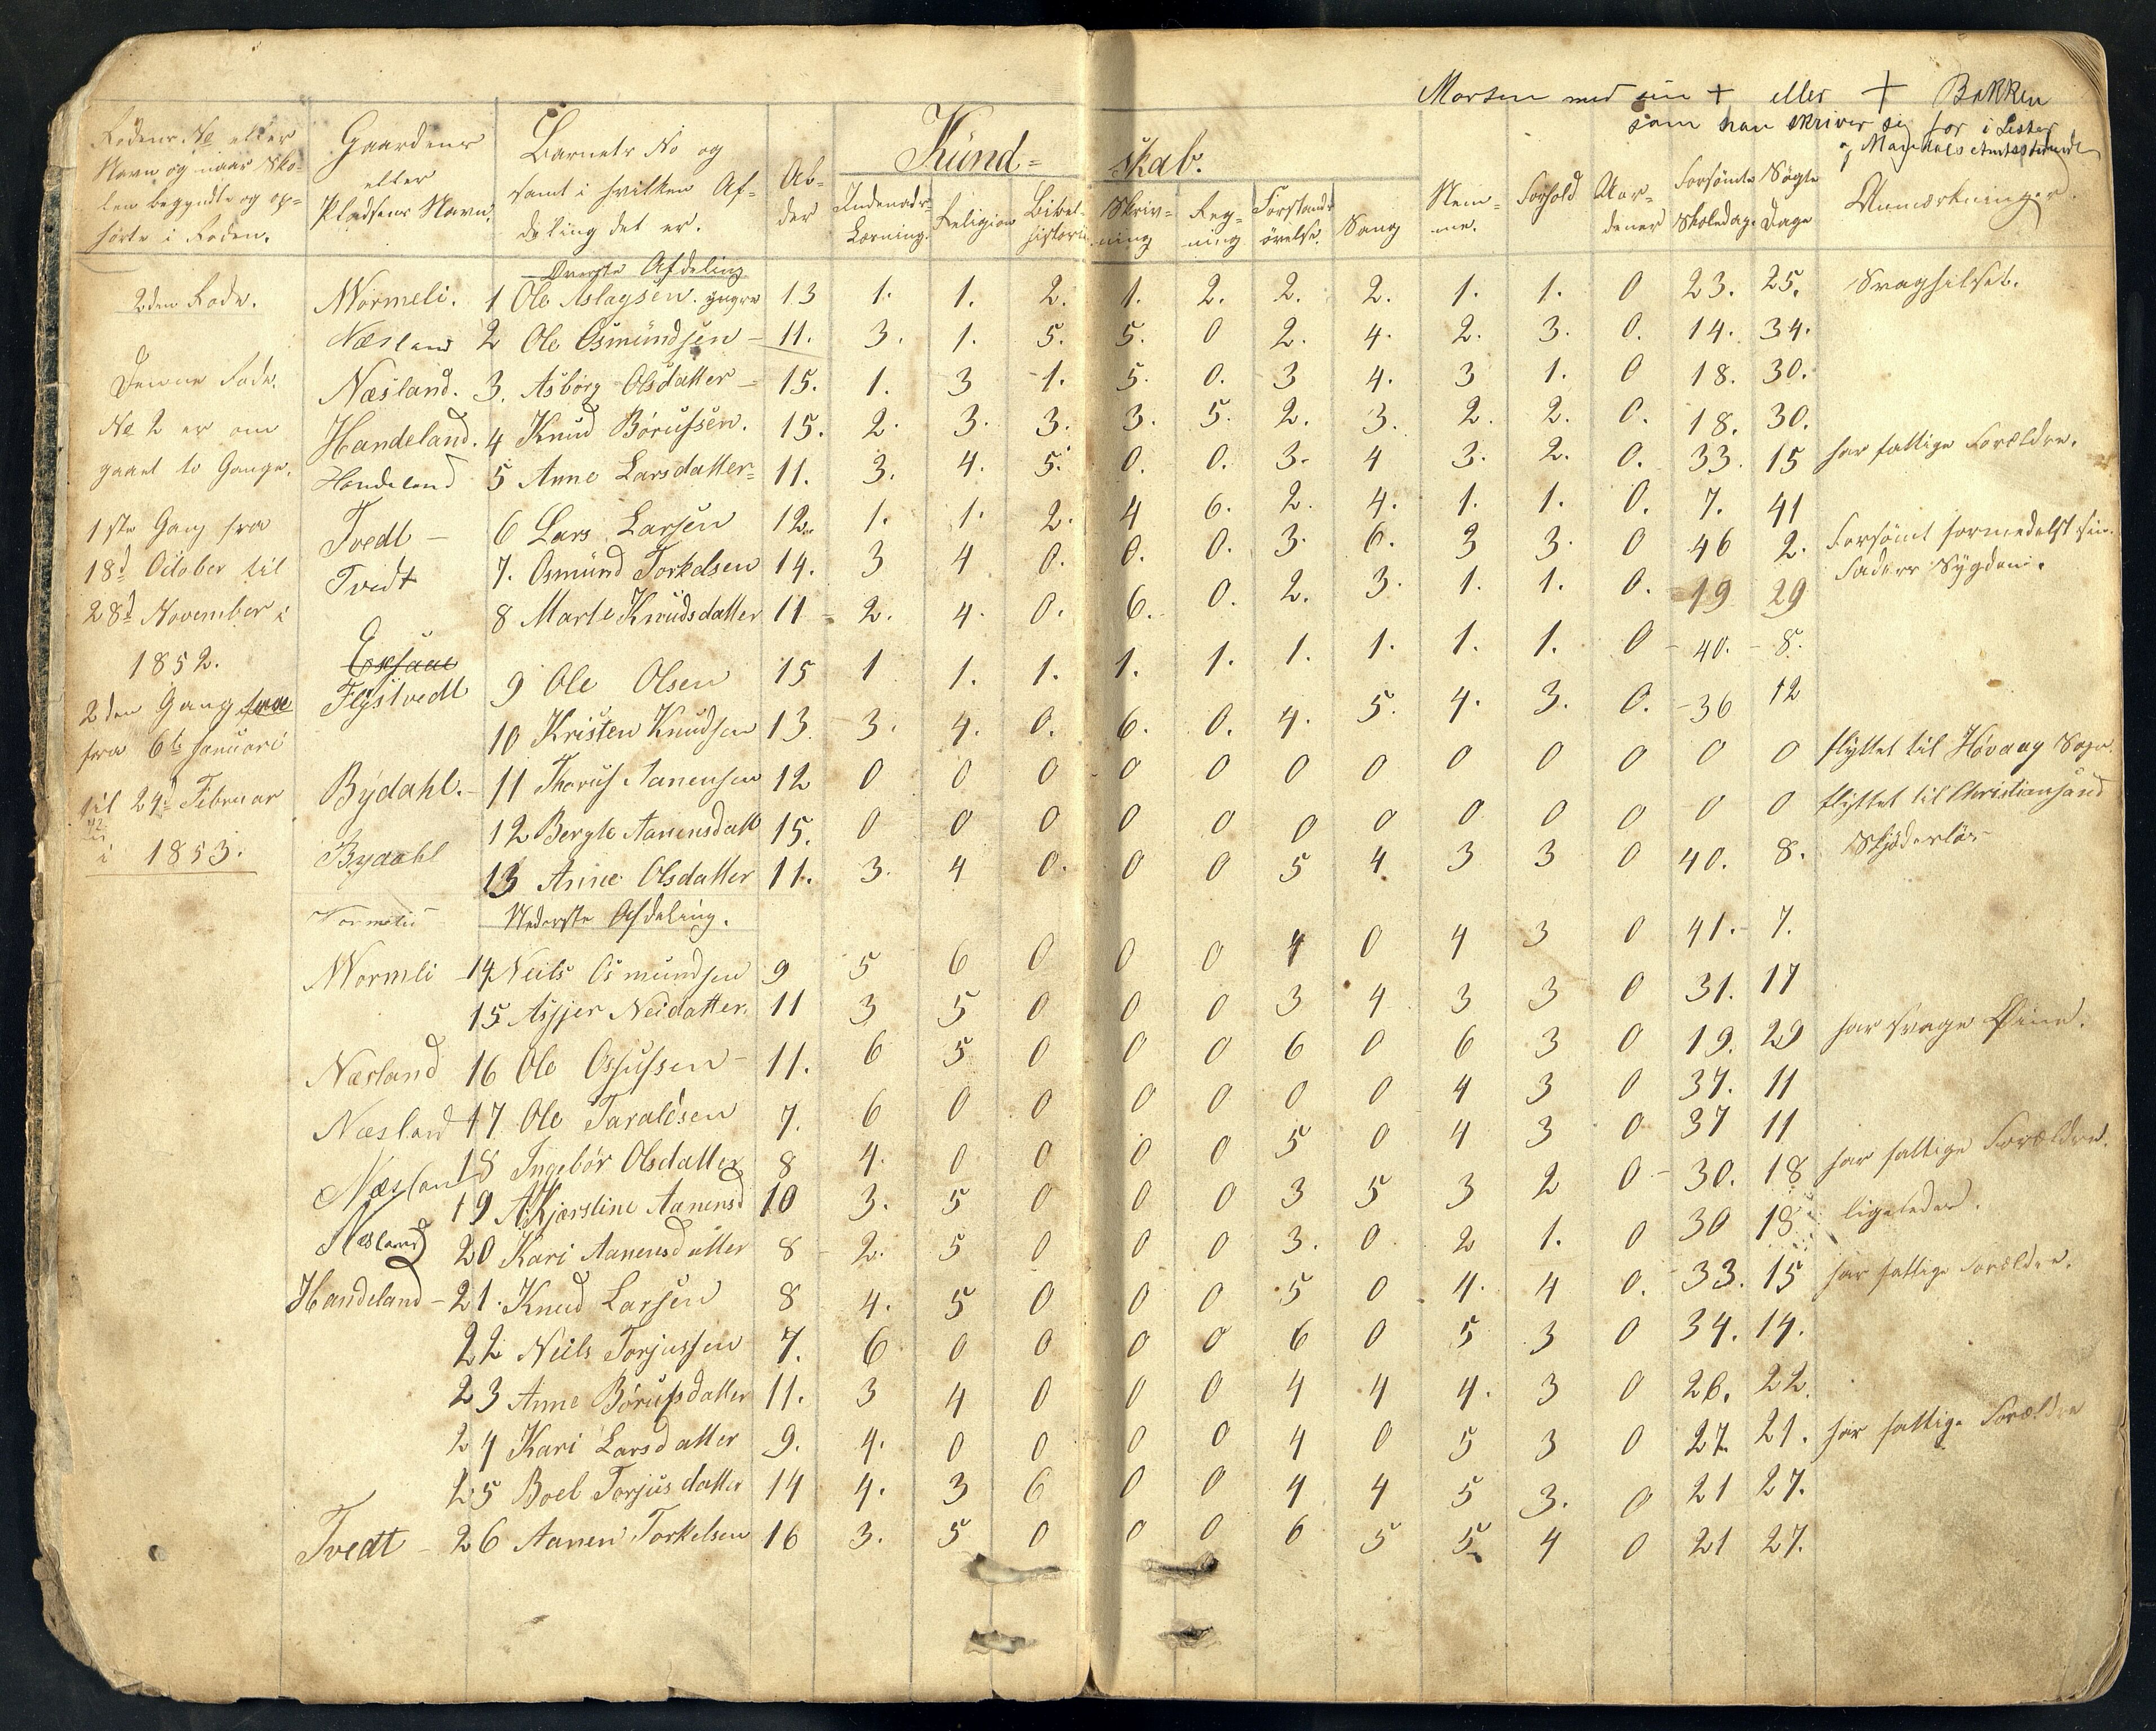 Morten med sin + eller + Bakken
som han skriver sig for i Lister
og Mandals Amtstidende
Rodens No eller Navn og naar Skolen begyndte og ophørte i Roden.
Gaardens eller Pladsens Navn.
Barnets No og samt i hvilken Afdeling det er.
Alder
Kundskab.
Indenads-Læsning.
Religion
Bibelhistorie
Skrivning
Regning
Forstandsøvelse.
Sang
Nemme.
Forhold
Aordener
Forsömte Skoledage
Søgte Dage
Anmærkninger.
2den Rode.
Denne Rode
No 2 er om
gaaet to Gange.
1ste Gang fra
18d October til
28d November i
1852.
2den Gang
fra 6te Januari
til 24d Februar
i 1853.
Øverste Afdeling
Wormeli. 1 Ole Aslagsen. yngre 13 1. 1. 2. 1. 2. 2. 2. 1. 1. 0 23. 25. Svaghelset.
Næsland 2 Ole Osmundsen - 11. 3. 1. 5. 5. 0 2. 4. 2. 3. 0. 14. 34.
Næsland. 3. Asborg Olsdatter - 15. 1. 3 1. 5. 0. 3 4. 3 1. 0 18. 30.
Handeland. 4 Knud Børufsen. 15. 2. 3. 3. 3. 5. 2. 3. 2. 2. 0. 18. 30.
Handeland 5 Anne Larsdatter- 11. 3. 4. 5. 0. 0. 3. 4 3. 2. 0. 33. 15 har fattige Forældre.
Tvedt - 6 Lars Larsen 12. 1. 1. 2. 4 6. 2. 4. 1. 1. 0. 7. 41
Tvedt 7. Osmund Torkelsen 14. 3 4 0. 0. 0. 3. 6. 3 3. 0 46 2. Forsömt formedelst sin Faders Sygdom.
8 Marte Knudsdatter 11 - 2. 4. 0. 6. 0. 2. 3. 1. 1. 0. 19 29
Flystvedt 9 Ole Olsen 15 1 1. 1. 1. 1. 1. 1. 1. 1. 0 - 40. - 8.
10 Kristen Knudsen 13. 3. 4. 0. 6. 0. 4. 5. 4. 3. 0. - 36 12
Bydahl. - 11 Tharus Aanensen 12 0 0 0 0 0 0 0 0 0 0 0 0 flyttet til Høvaag Sogn.
12 Bergte Aanensdatt 15. 0 0 0 0 0 0 0 0 0 0 0 0 flyttet til Christiansand
Bydahl 13 Anne Olsdatter 11. 3. 4 0. 0 0 5 4 3 3 0 40. 8. Skjöderløs
Wormelii - Nederste Afdeling.
Wormli - 14 Neils Osmundsen 9 5 6 0 0 0 4 0 4 3 0 41. - 7.
15 Asjjer Neidatter. 11 3 5 0 0 0 3 4 3 3 0 31. 17
Næsland 16 Ole Osjufsen - 11. 6 5 0 0 0 6 0 6 3 0 19. 29 har svage Øine.
Næsland 17 Ole Taraldsen 7. 6 0 0 0 0 0 0 4 3 0 37. 11
Næsland 18 Ingebör Olsdatter 8 4. 0 0 0 0 5 0 4 3 0 37 11
19 AKjærstine Aanensd 10 3. 5 0 0 0 3 5 3 2 0 - 30. 18 har fattige Forældre.
Næsland 20 Kari Aanensdatter 8 - 2. 5 0 0 0 3. 0 2 1. 0 30 18 ligeledes.
Handeland - 21. Knud Larsen 8 4. 5 0 0 0 5 0 4. 4 0. 33. 15 har fattige Forældre.
22 Niels Torjussen 7. 6 0 0 0 0 6 0 5 3 0 34. 14.
23 Anne Børufsdatter 11. 3 4 0 0 0 4 4 4. 3 0 26. 22.
24 Kari Larsdatter 9. 4. 0 0 0 0 4 0 5 3 0 27. 21. har fattige Forældre
25 Boel Torjusdatter 14 4. 3 6 0 0 4 4 5 3. 0 21 27.
Tvedt - 26 Aanen Torkelsen 16 3. 5 0 0 0 6 5 5 4 0 21 27.